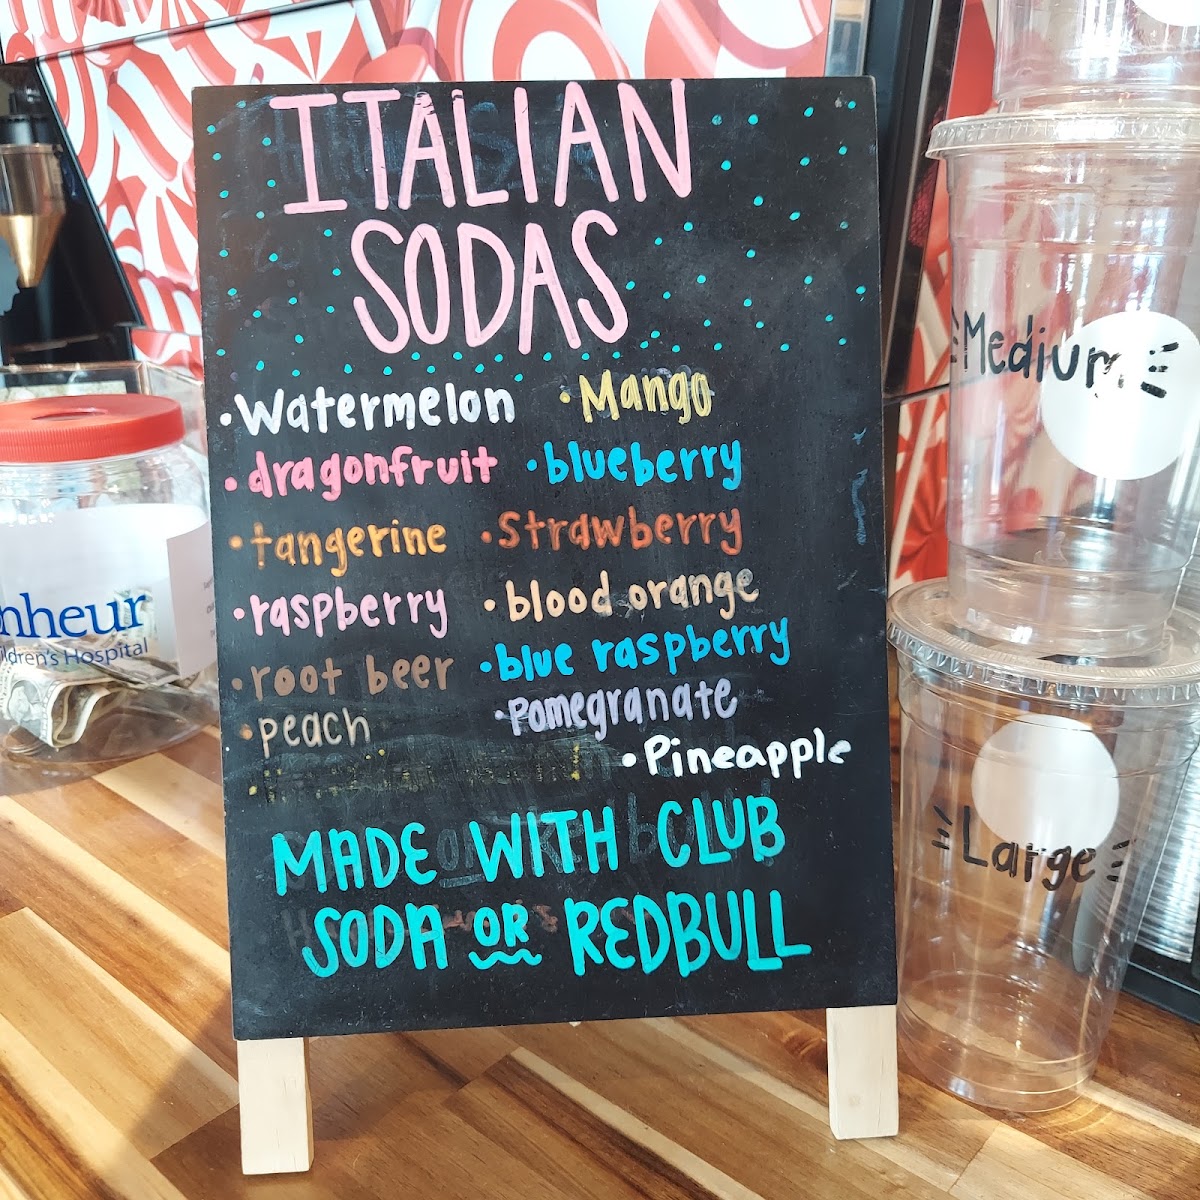 ITALIAN
SODAS
•Watermelon •Mango
•dragonfruit •blueberry
•tangerine •Strawberry
•raspberry •blood orange
•root beer •blue raspberry
•peach •Pomegranate
•Pineapple
MADE WITH CLUB
SODA OR REDBULL
nheur
ildren's Hospital
Medium
Large